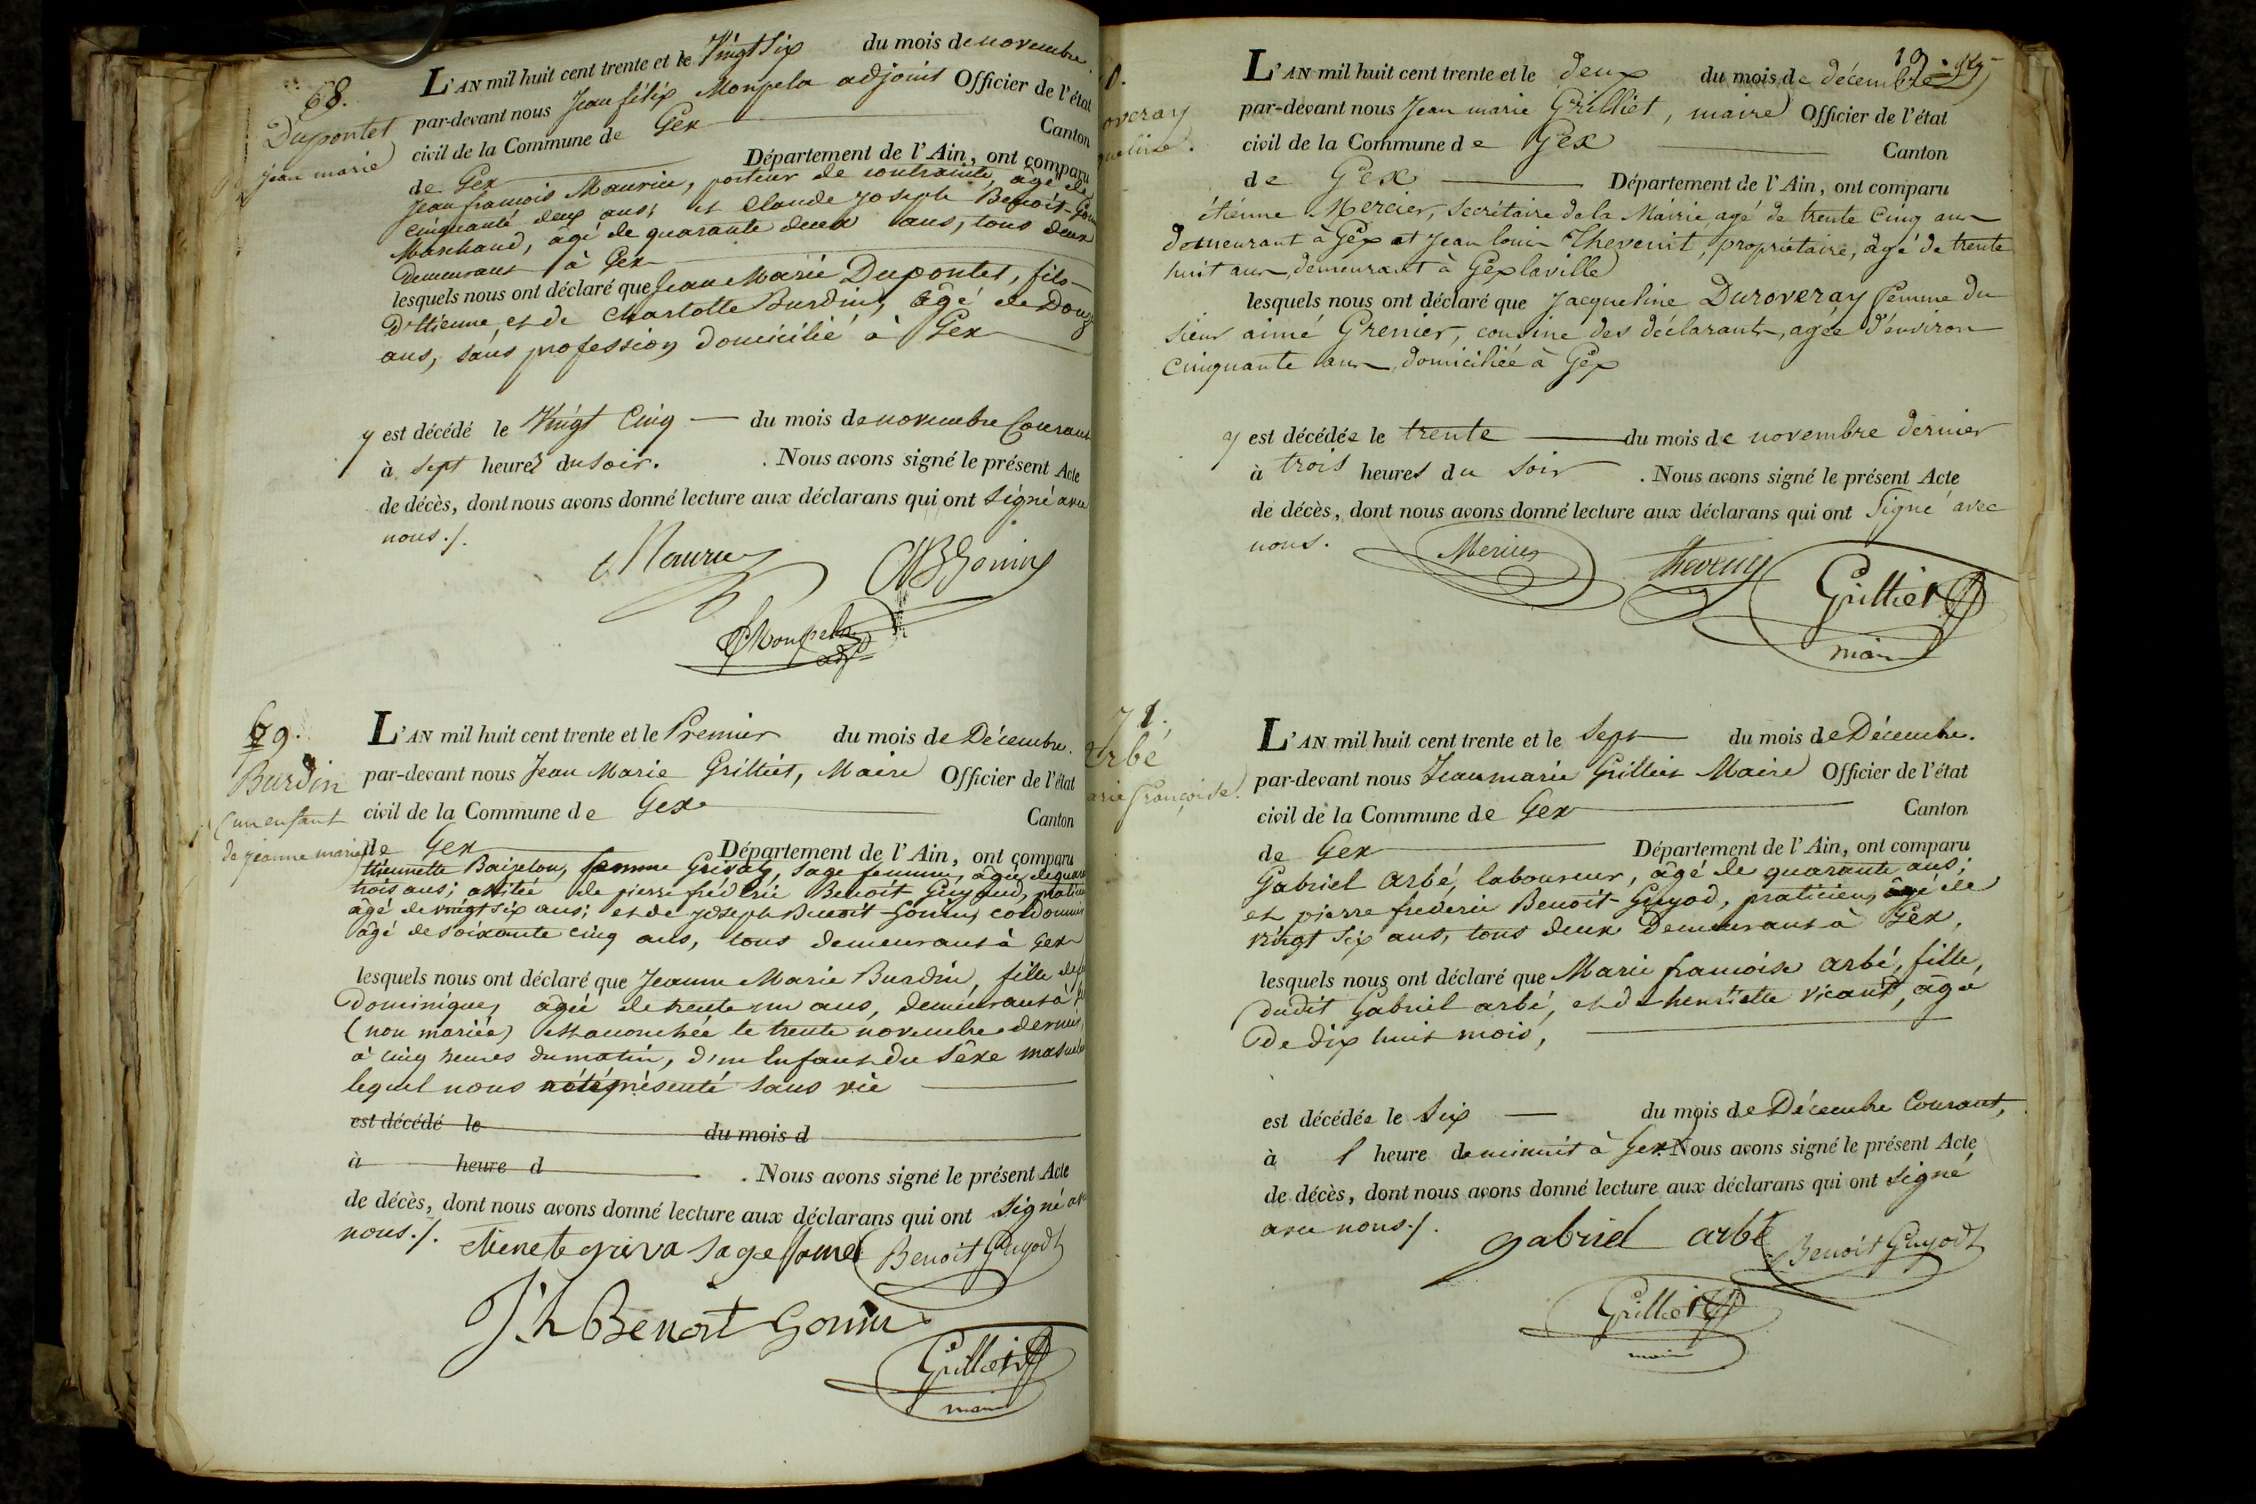 68.
Dupontet
jean marie
L'AN mil huit cent trente et le Vingt Six du mois de novembre.
par-devant nous Jean félix Monpela adjoint Officier de l'état
civil de la Commune de Gex Canton
de Gex Département de l'Ain, ont comparu
Jean francois Maurice, porteur de contrainte, âgé de
cinquante deux ans; et Claude Joseph Benoit-Gonin
Marchand, âgé de quarante deux ans, tous deux
Demeurant à Gex
lesquels nous ont déclaré que Jean Marie Dupontet, fils
D'Etienne, et de Charlotte Burdin, âgé de Douze
ans, sans profession domicilié à Gex
y est décédé le Vingt Cinq du mois de novembre Courant
à sept heures du soir. . Nous avons signé le présent Acte
de décès, dont nous avons donné lecture aux déclarans qui ont signé avec
nous./.
Maurice
CJBGonin
Monpela
adj
69.
Burdin
(un enfant
de jeanne marie
L'AN mil huit cent trente et le Premier du mois de Décembre.
par-devant nous Jean Marie Grilliet, Maire Officier de l'état
civil de la Commune de Gex Canton
de Gex Département de l'Ain, ont comparu
femme Grivaz, sage femme, âgée de
trois ans; assitée de pierre fréderic Benoit Guyaud, praticien
âgé de vingt six ans; et de Joseph Benoit-Gonin, cordonnier
âgé de soixante cinq ans, tous demeurant à Gex
lesquels nous ont déclaré que Jeanne Marie Burdin, fille de
Dominique, âgée de trente un ans, demeurant à
(non mariée) est accouchée le trente novembre dernier,
à cinq heures du matin, d'un Enfant du Sêxe masculin
lequel nous présenté sans vie
est décédé le du mois d
à heure d . Nous avons signé le présent Acte
de décès, dont nous avons donné lecture aux déclarans qui ont signé
nous./.
etienete griva sage fame
Benoit Guyodt
Jh Benoit Gonin
Grilliet
maire
19
0.
overay
queline.
L'AN mil huit cent trente et le deux du mois de décembre
par-devant nous Jean marie Grilliet, maire Officier de l'état
civil de la Commune de Gex Canton
de Gex Département de l'Ain, ont comparu
étiénne Mercier, Secrétaire de la Mairie agé de trente Cinq ans
demeurant à Gex et Jean louis Thevenit, propriétaire, âgé de trente
huit ans, demeurant à Gex la ville
lesquels nous ont déclaré que Jacqueline Duroveray femme du
sieur aimé Grenier, cousine des déclarants, agée d'environ
Cinquante ans, domiciliée à Gex
y est décédée le trente du mois de novembre dernier
à trois heures du soir . Nous avons signé le présent Acte
de décès, dont nous avons donné lecture aux déclarans qui ont Signé avec
nous.
Mercier
Thevenit
Grilliet
maire
71.
arbé
arie françoise.
L'AN mil huit cent trente et le Sept du mois de Décembre.
par-devant nous Jean marie Grilliet Maire Officier de l'état
civil de la Commune de Gex Canton
de Gex Département de l'Ain, ont comparu
Gabriel arbé, laboureur, âgé de quarante ans;
et pierre frederic Benoit-Guyod, praticien, âgé de
vingt Six ans, tous deux Demeurant à Gex,
lesquels nous ont déclaré que Marie francoise arbé, fille,
dudit Gabriel arbé, et de henriette Vicant, âgée
De dix huit mois,
est décédée le Six du mois de Décembre Courant,
à 1 heure de minuit à Gex. Nous avons signé le présent Acte
de décès, dont nous avons donné lecture aux déclarans qui ont signé
avec nous./.
gabriel arbé
Benoit Guyodt
Grilliet
maire